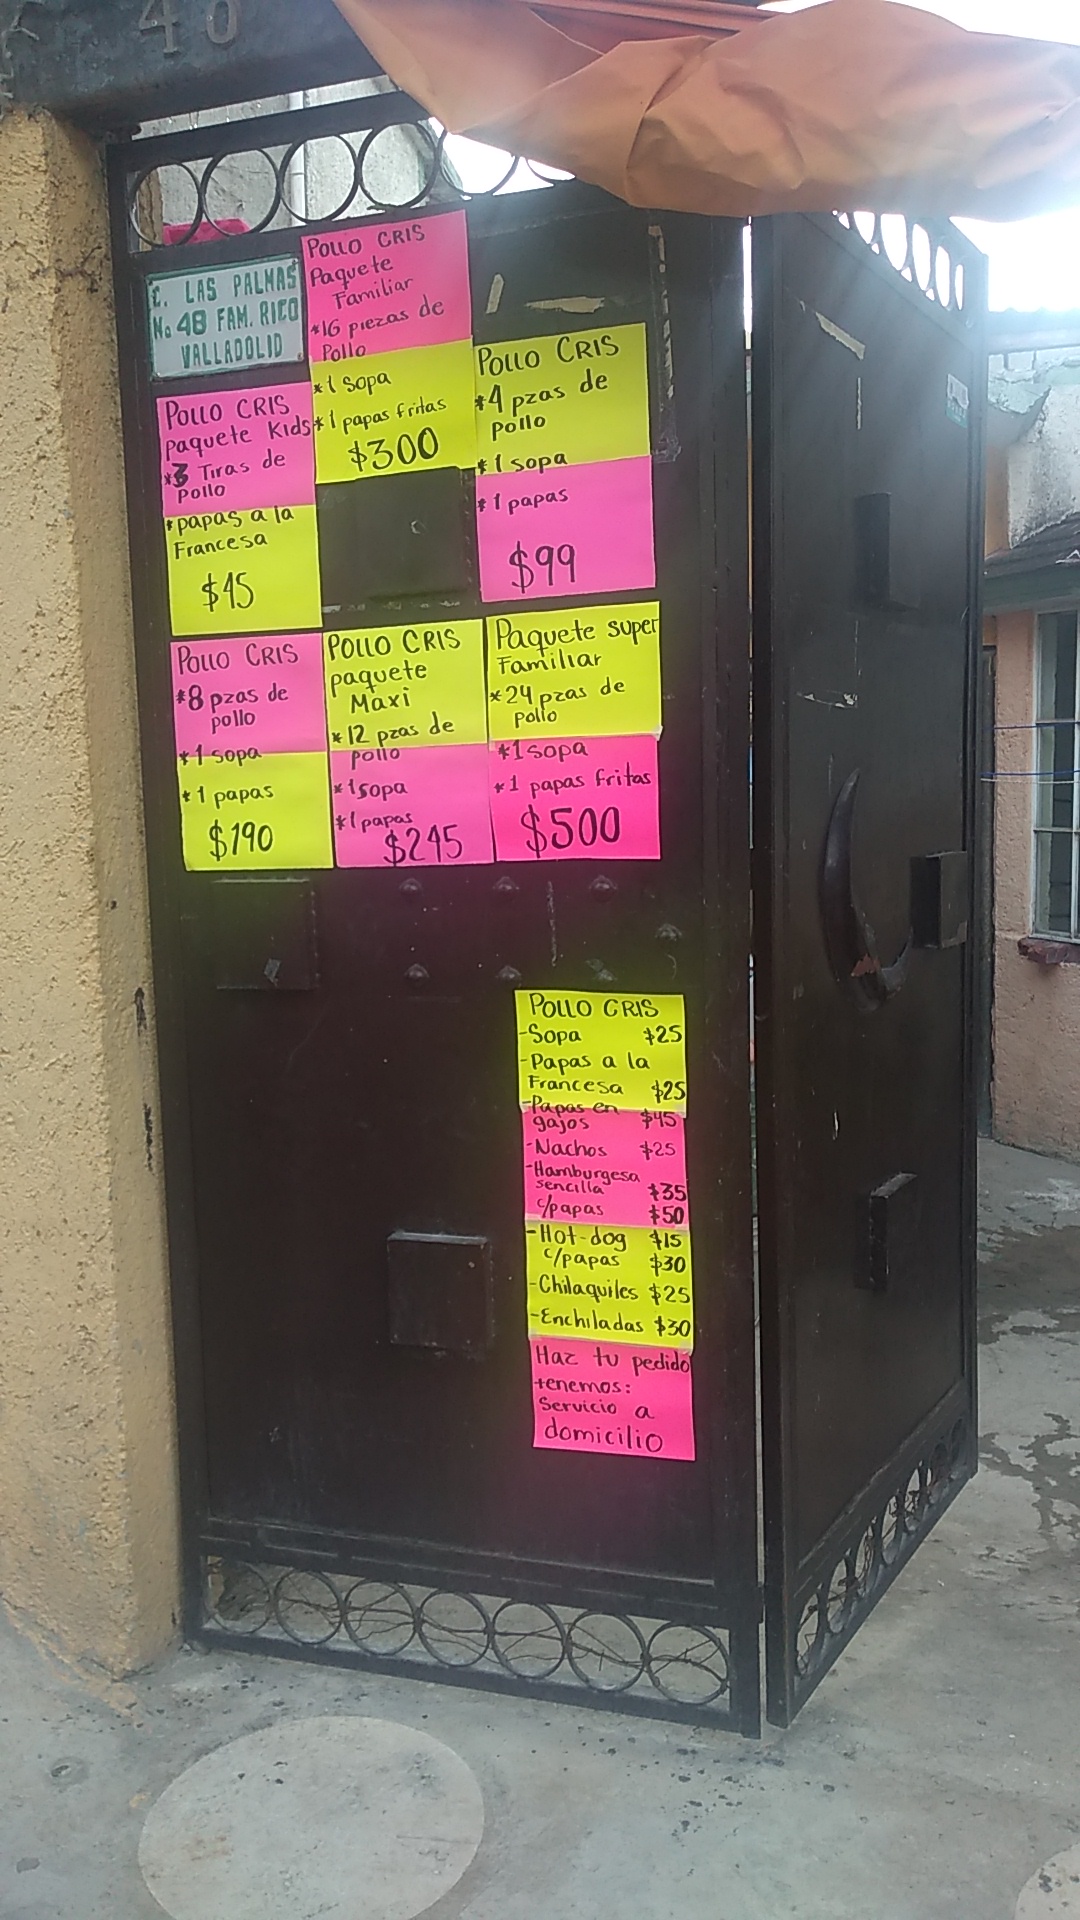 40
C. LAS PALMAS
No 48 FAM. RICO
VALLADOLID
POLLO CRIS
Paquete
Familiar
*16 piezas de
Pollo
*1 sopa
*1 papas fritas
$300
POLLO CRIS
*4 pzas de
pollo
*1 sopa
*1 papas
$99
POLLO CRIS
paquete Kids
*3 Tiras de
pollo
*papas a la
Francesa
$45
POLLO CRIS
*8 pzas de
pollo
*1 sopa
*1 papas
$190
POLLO CRIS
paquete
Maxi
*12 pzas de
pollo
*1 sopa
*1 papas
$245
Paquete super
Familiar
*24 pzas de
pollo
*1 sopa
*1 papas fritas
$500
POLLO CRIS
-Sopa $25
-Papas a la
Francesa $25
-Papas en
gajos $45
-Nachos $25
-Hamburgesa
sencilla $35
c/papas $50
-Hot-dog $15
c/papas $30
-Chilaquiles $25
-Enchiladas $30
Haz tu pedido
tenemos:
Servicio a
domicilio